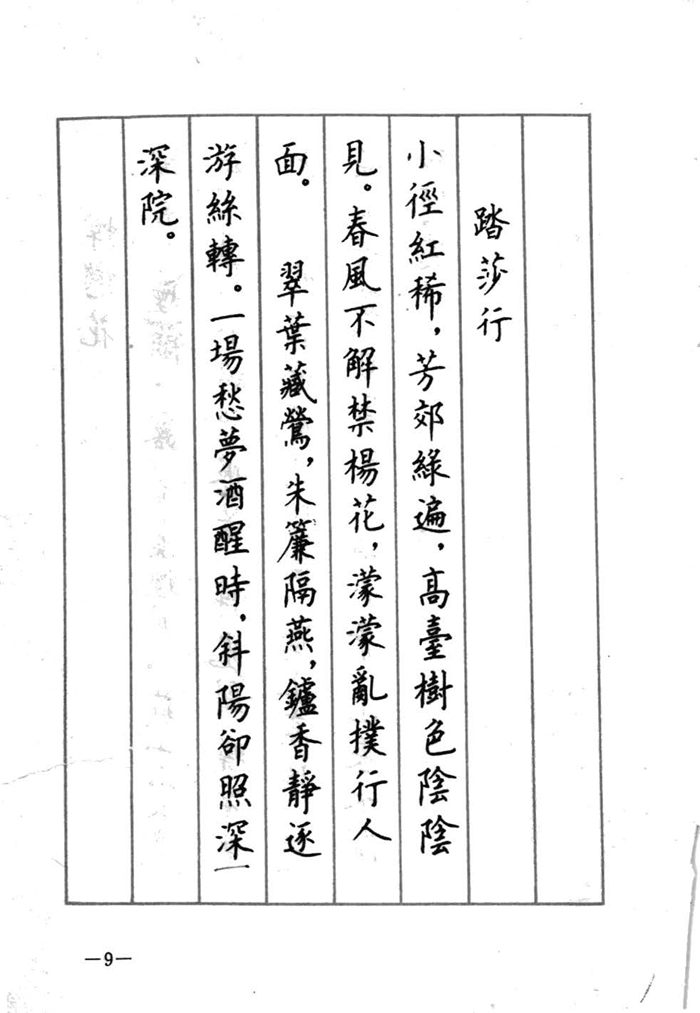 踏莎行
小徑紅稀，芳郊綠遍，高臺樹色陰陰
見。春風不解禁楊花，濛濛亂撲行人
面。　翠葉藏鶯，朱簾隔燕，鑪香靜逐
游絲轉。一場愁夢酒醒時，斜陽卻照深
深院。
—9—